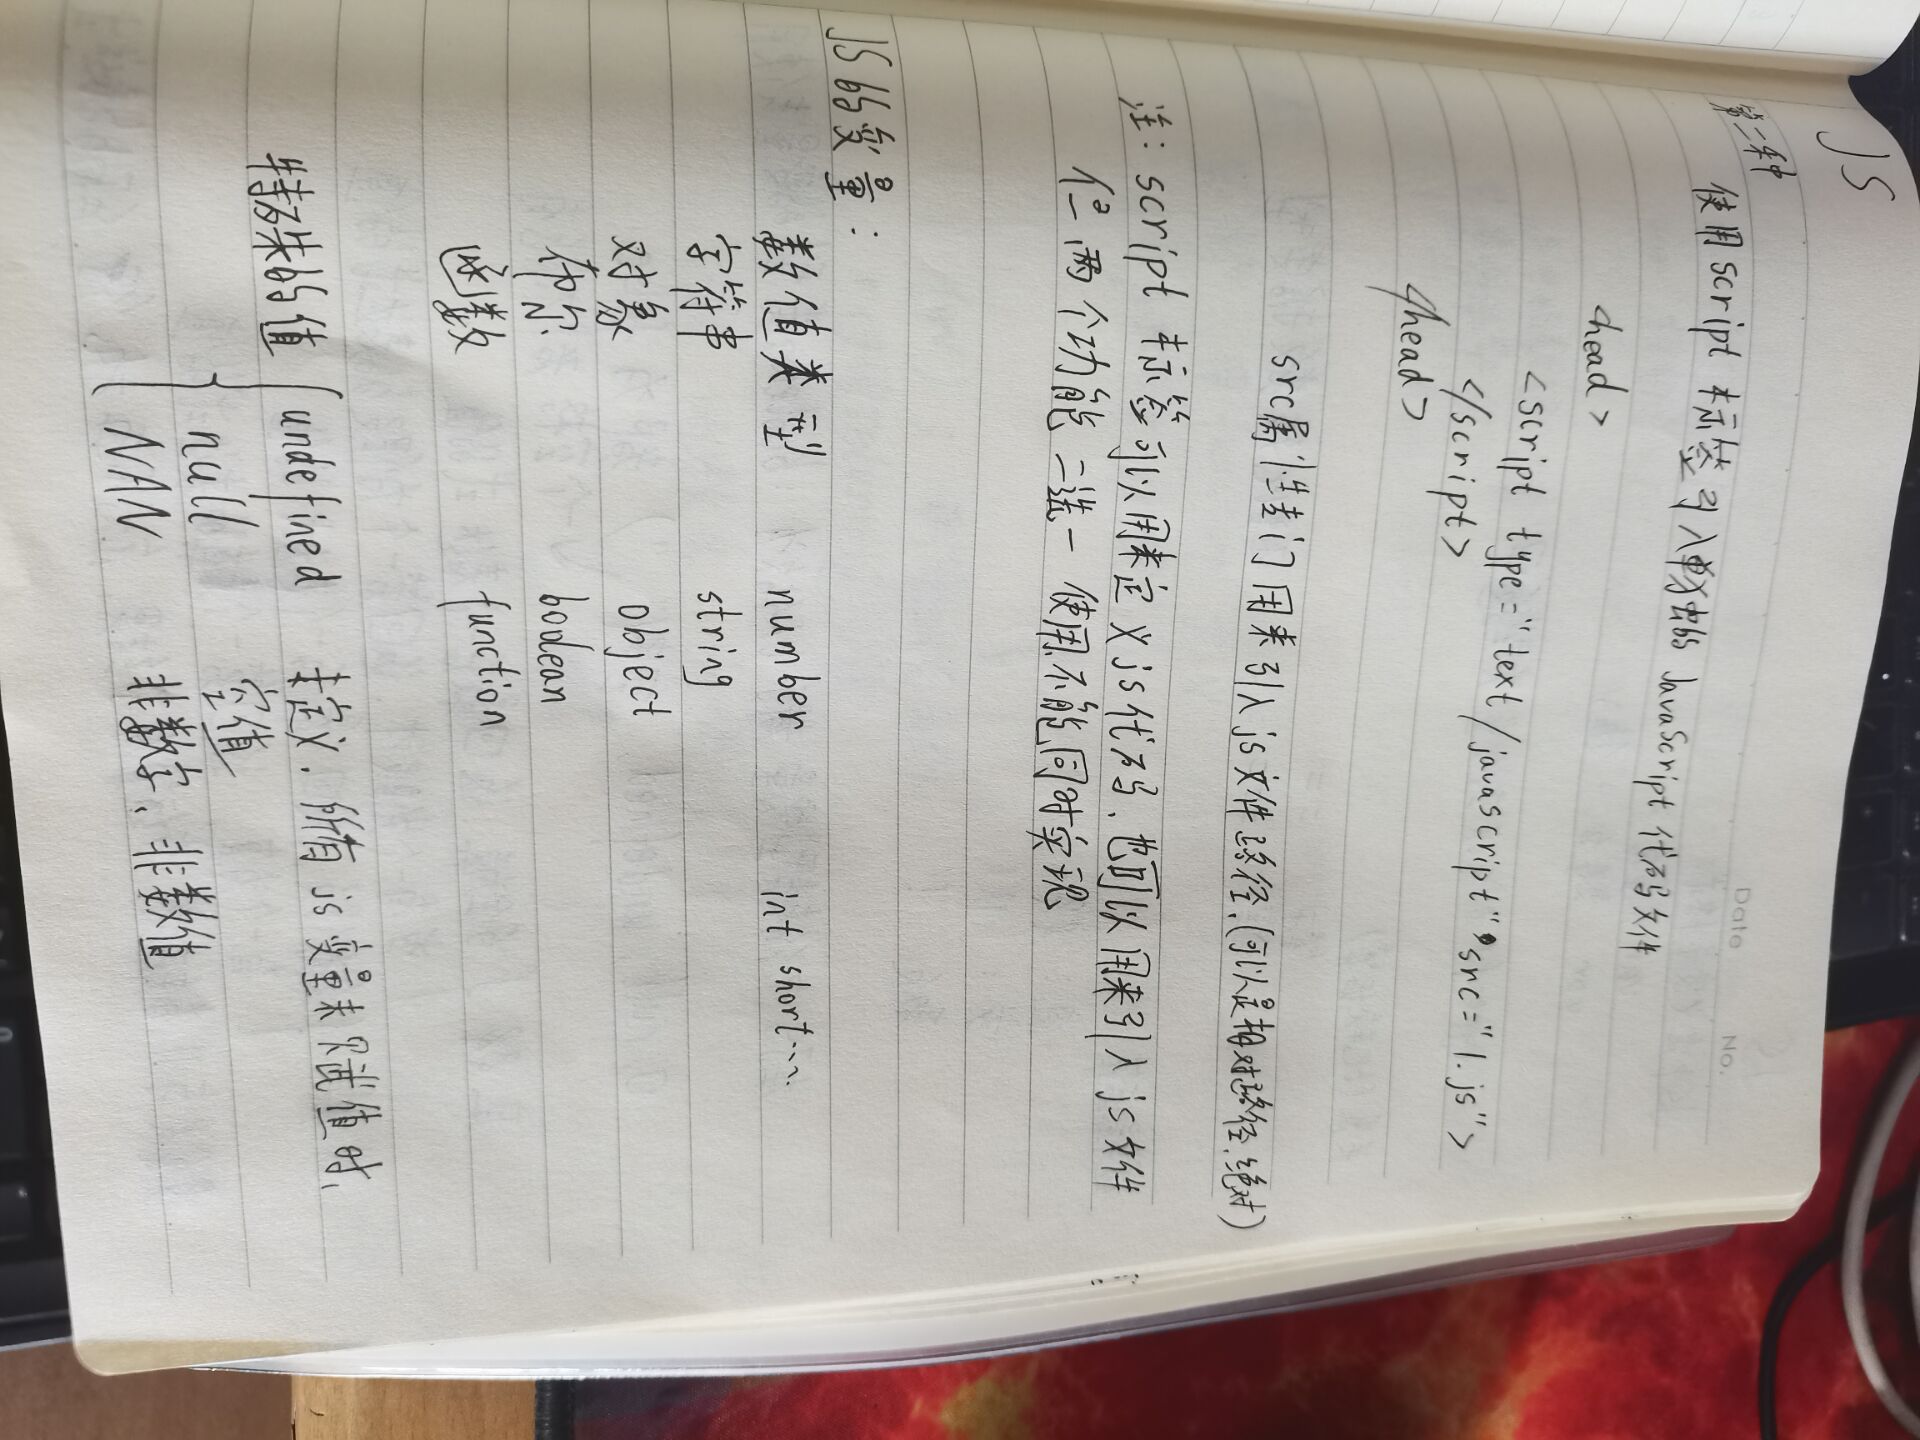 JS
Date No.
第二种 使用script 标签引入单独的 JavaScript 代码文件
<head>
<script type="text/javascript" src="1.js">
</script>
<head>
src属性专门用来引入js文件路径.(可以是相对路径.绝对)
注: script 标签可以用来定义js代码.也可以用来引入js文件
但两个功能二选一 使用.不能同时实现
JS的变量:
数值类型 number int short...
字符串 string
对象 object
布尔 boolean
函数 function
特殊的值 undefined 未定义.所有js变量未赋值时.
null 空值
NAN 非数字、非数值